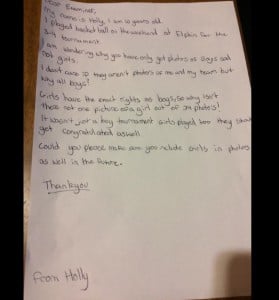 Dear Examiner,
my name is Holly, I am 10 years old.
I played basketball on the weekend at Elphin for the
big tournament.
I am wondering why you have only got photos of Boys and
not girls.
I don't care if they aren't photos of me and my team but
why all boys!
Girls have the exact rights as boys, so why isn't
there not one picture of a girl out of 34 photos!
It wasn't just a boy tournament Girls played too they should
get congratulated aswell.
Could you please make sure you include Girls in photos
as well in the future.
Thankyou
From Holly